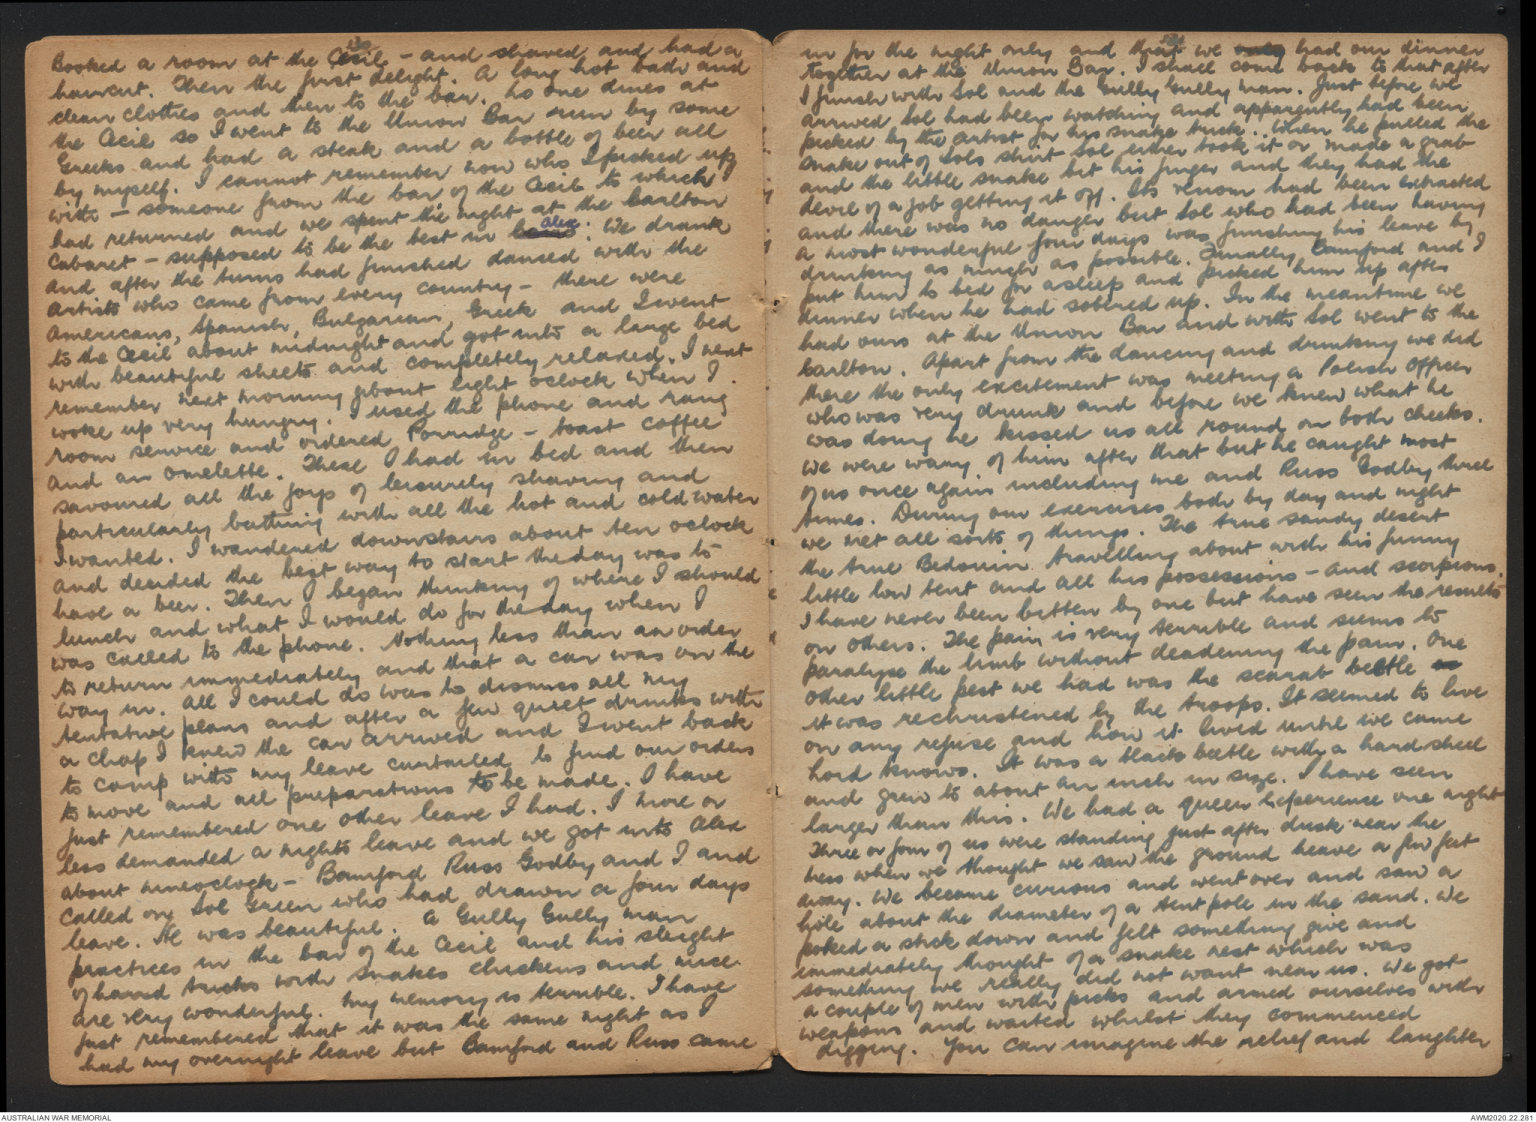 130
Booked a room at the Cecil - and shaved and had a
haircut. Then the first delight. A long hot bath and
clean clothes and then to the bar. No one dines at
the Cecil so I went to the Union Bar run by some
Greeks and had a steak and a bottle of beer all
by myself. I cannot remember now who I picked up
with - someone from the bar of the Cecil to which I
had returned and we spent the night at the Carlton
Cabaret - supposed to be the best in Alex. We drank
and after the turns had finished danced with the
artists who came from every country - there were
Americans, Spanish, Bulgarian, Greek and I went
to the Cecil about midnight and got into a large bed
with beautiful sheets and completely relaxed. I next
remember next morning about eight oclock when I
woke up very hungry. I used the phone and rang
room service and ordered Porridge - toast coffee
and an omelette. These I had in bed and then
savoured all the joys of leisurely shaving and
particularly bathing with all the hot and cold water
I wanted. I wandered downstairs about ten oclock
and decided the best way to start the day was to
have a beer. Then I began thinking of where I should
lunch and what I would do for the day when I
was called to the phone. Nothing less than an order
to return immediately and that a car was on the
way in. All I could do was to dismiss all my
tentative plans and after a few quiet drinks with
a chap I knew the car arrived and I went back
to camp with my leave curtailed to find our orders
to move and all preparations to be made. I have
just remembered one other leave I had. I more or
less demanded a nights leave and we got into Alex
about nineoclock - Bamford Russ Godby and I and
called on Sol Green who had drawn a four days
leave. He was beautiful. A Gully Gully man
practices in the bar of the Cecil and his sleight
of hand tricks with snakes chickens and mice
are very wonderful. My memory is terrible. I have
just remembered that it was the same night as I
had my overnight leave but Bamford and Russ came
131
in for the night only and that we had our dinner
together at the Union Bar. I shall come back to that after
I finish with Sol and the Gully Gully man. Just before we
arrived Sol had been watching and apparently had been
picked by the artist for his snake trick. When he pulled the
snake out of Sols shirt Sol either took it or made a grab
and the little snake bit his finger and they had the
devil of a job getting it off. Its venom had been extracted
and there was no danger but Sol who had been having
a most wonderful four days was finishing his leave by
drinking as much as possible. Finally Bamford and I
put him to bed for asleep and picked him up after
dinner when he had sobered up. In the meantime we
had ours at the Union Bar and with Sol went to the
Carlton. Apart from the dancing and drinking we did
there the only excitement was meeting a Polish Officer
who was very drunk and before we knew what he
was doing he kissed us all round on both cheeks.
We were wary of him after that but he caught most
of us once again including me and Russ Godby three
times. During our exercises both by day and night
we met all sorts of things. The true sandy desert
the true Bedouin travelling about with his funny
little low tent and all his possessions - and scorpions.
I have never been bitten by one but have seen the results
on others. The pain is very terrible and seems to
paralyse the limb without deadening the pain. One
other little pest we had was the scarab beetle
it was rechristened by the troops. It seemed to live
on any refuse and how it lived until we came
Lord knows. It was a black beetle with a hard shell
and grew to about an inch in size. I have seen
larger than this. We had a queer experience one night
Three or four of us were standing just after dusk near the
mess when we thought we saw the ground heave a few feet
away. We became curious and went over and saw a
hole about the diameter of a tent pole in the sand. We
poked a stick down and felt something give and
immediately thought of a snake nest which was
something we really did not want near us. We got
a couple of men with picks and armed ourselves with
weapons and waited whilst they commenced
digging. You can imagine the relief and laughter
AUSTRALIAN WAR MEMORIAL
AWM2020.22.281